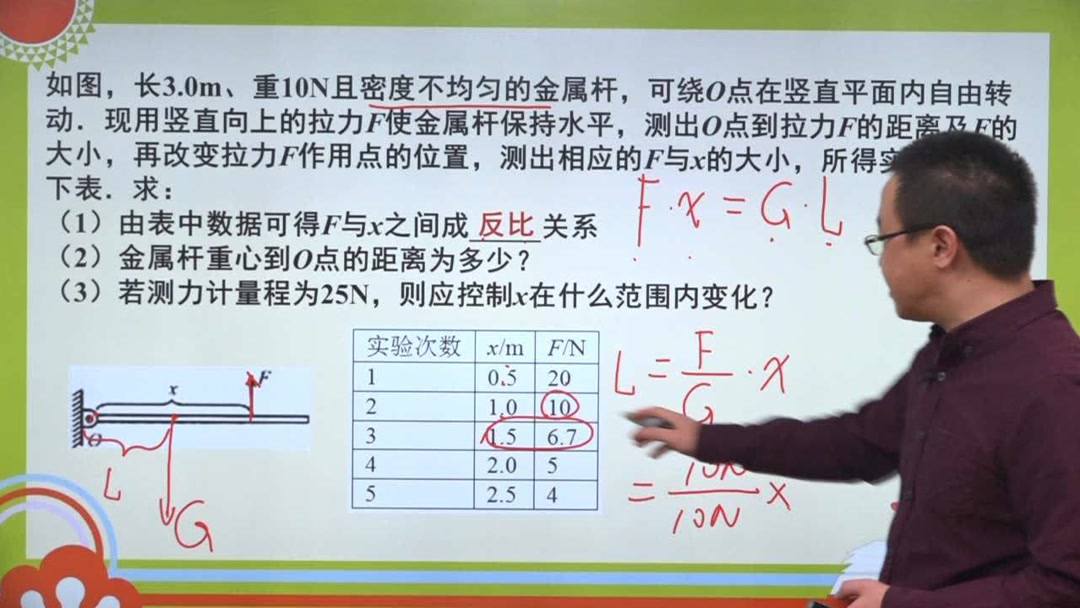 如图，长3.0m、重10N且密度不均匀的金属杆，可绕O点在竖直平面内自由转
动．现用竖直向上的拉力F使金属杆保持水平，测出O点到拉力F的距离及F的
大小，再改变拉力F作用点的位置，测出相应的F与x的大小，所得实
下表．求：
F·x=G·L
（1）由表中数据可得F与x之间成 反比 关系
（2）金属杆重心到O点的距离为多少？
（3）若测力计量程为25N，则应控制x在什么范围内变化？
实验次数 x/m F/N
1 0.5 20
2 1.0 10
3 1.5 6.7
4 2.0 5
5 2.5 4
x F
O
L
G
L=F/G·x
=10N/10N x